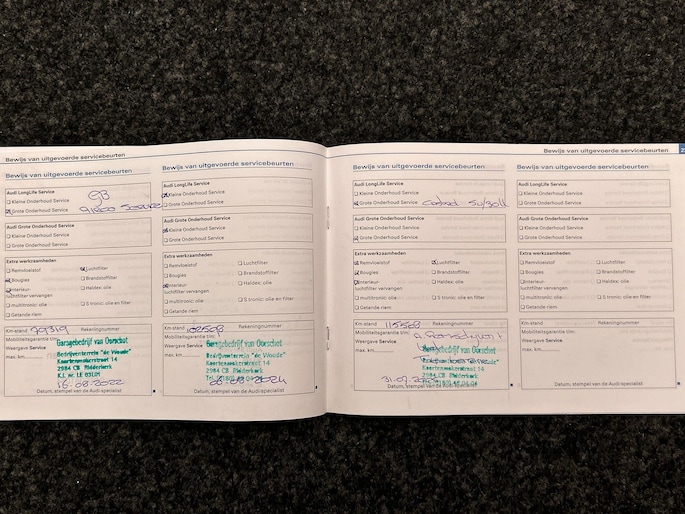 Bewijs van uitgevoerde servicebeurten
Bewijs van uitgevoerde servicebeurten
Audi LongLife Service
Kleine Onderhoud Service
Grote Onderhoud Service
Audi Grote Onderhoud Service
Kleine Onderhoud Service
Grote Onderhoud Service
Extra werkzaamheden
Remvloeistof
Luchtfilter
Bougies
Brandstoffilter
Interieur-
luchtfilter vervangen
Haldex; olie
multitronic: olie
S tronic: olie en filter
Getande riem
Km-stand 79319 Rekeningnummer
Mobiliteitsgarantie t/m:
Weergave Service
max. km
Garagebedrijf van Oorschot
Bedrijventerrein "de Woude"
Kaartenmakerstraat 14
2984 CB Ridderkerk
16.08.2022
Datum, stempel van de Audi-specialist
Bewijs van uitgevoerde servicebeurten
Audi LongLife Service
Kleine Onderhoud Service
Grote Onderhoud Service
Audi Grote Onderhoud Service
Kleine Onderhoud Service
Grote Onderhoud Service
Extra werkzaamheden
Remvloeistof
Luchtfilter
Bougies
Brandstoffilter
Interieur-
luchtfilter vervangen
Haldex; olie
multitronic: olie
S tronic: olie en filter
Getande riem
Km-stand Rekeningnummer
Mobiliteitsgarantie t/m:
Weergave Service
max. km
Garagebedrijf van Oorschot
Bedrijventerrein "de Woude"
Kaartenmakerstraat 14
2984 CB Ridderkerk
Datum, stempel van de Audi-specialist
Bewijs van uitgevoerde servicebeurten
Bewijs van uitgevoerde servicebeurten
Audi LongLife Service
Kleine Onderhoud Service
Grote Onderhoud Service
Audi Grote Onderhoud Service
Kleine Onderhoud Service
Grote Onderhoud Service
Extra werkzaamheden
Remvloeistof
Luchtfilter
Bougies
Brandstoffilter
Interieur-
luchtfilter vervangen
Haldex; olie
multitronic: olie
S tronic: olie en filter
Getande riem
Km-stand Rekeningnummer
Mobiliteitsgarantie t/m:
Weergave Service
max. km
Garagebedrijf van Oorschot
Kaartenmakerstraat 14
2984 CB Ridderkerk
Datum, stempel van de Audi-specialist
Bewijs van uitgevoerde servicebeurten
Audi LongLife Service
Kleine Onderhoud Service
Grote Onderhoud Service
Audi Grote Onderhoud Service
Kleine Onderhoud Service
Grote Onderhoud Service
Extra werkzaamheden
Remvloeistof
Luchtfilter
Bougies
Brandstoffilter
Interieur-
luchtfilter vervangen
Haldex; olie
multitronic: olie
S tronic: olie en filter
Getande riem
Km-stand Rekeningnummer
Mobiliteitsgarantie t/m:
Weergave Service
max. km
Datum, stempel van de Audi-specialist